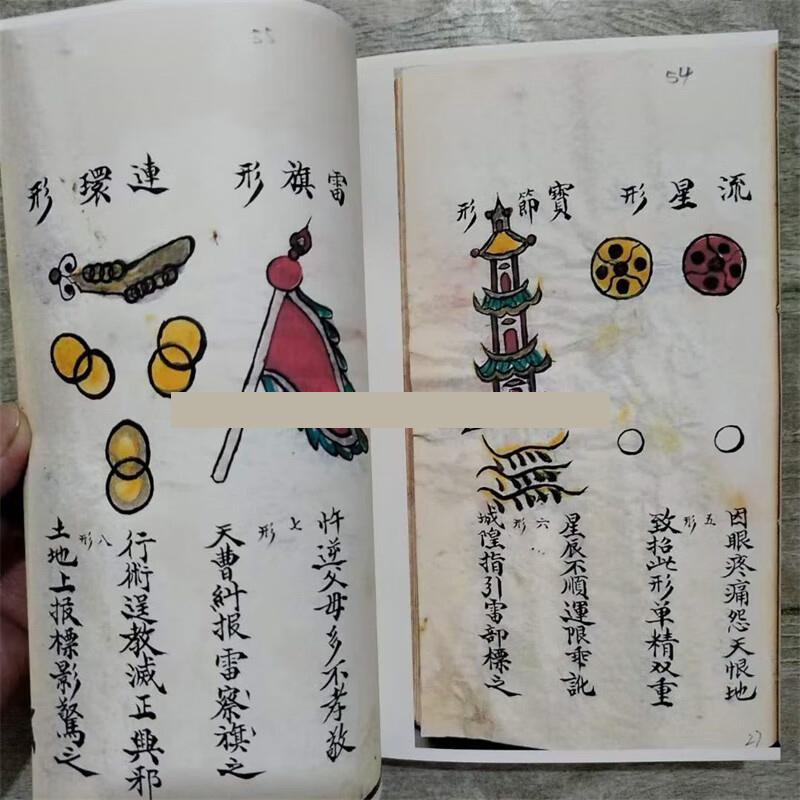 54
流星形
寶節形
因眼疼痛怨天恨地
五形
致招此形单精双重
星辰不順運限乖訛
六形
城隍指引雷部標之
27
55
雷旗形
連環形
忤逆父母多不孝敬
七形
天曹糾报雷察旗之
行術逞教滅正興邪
八形
土地上报標影驚之